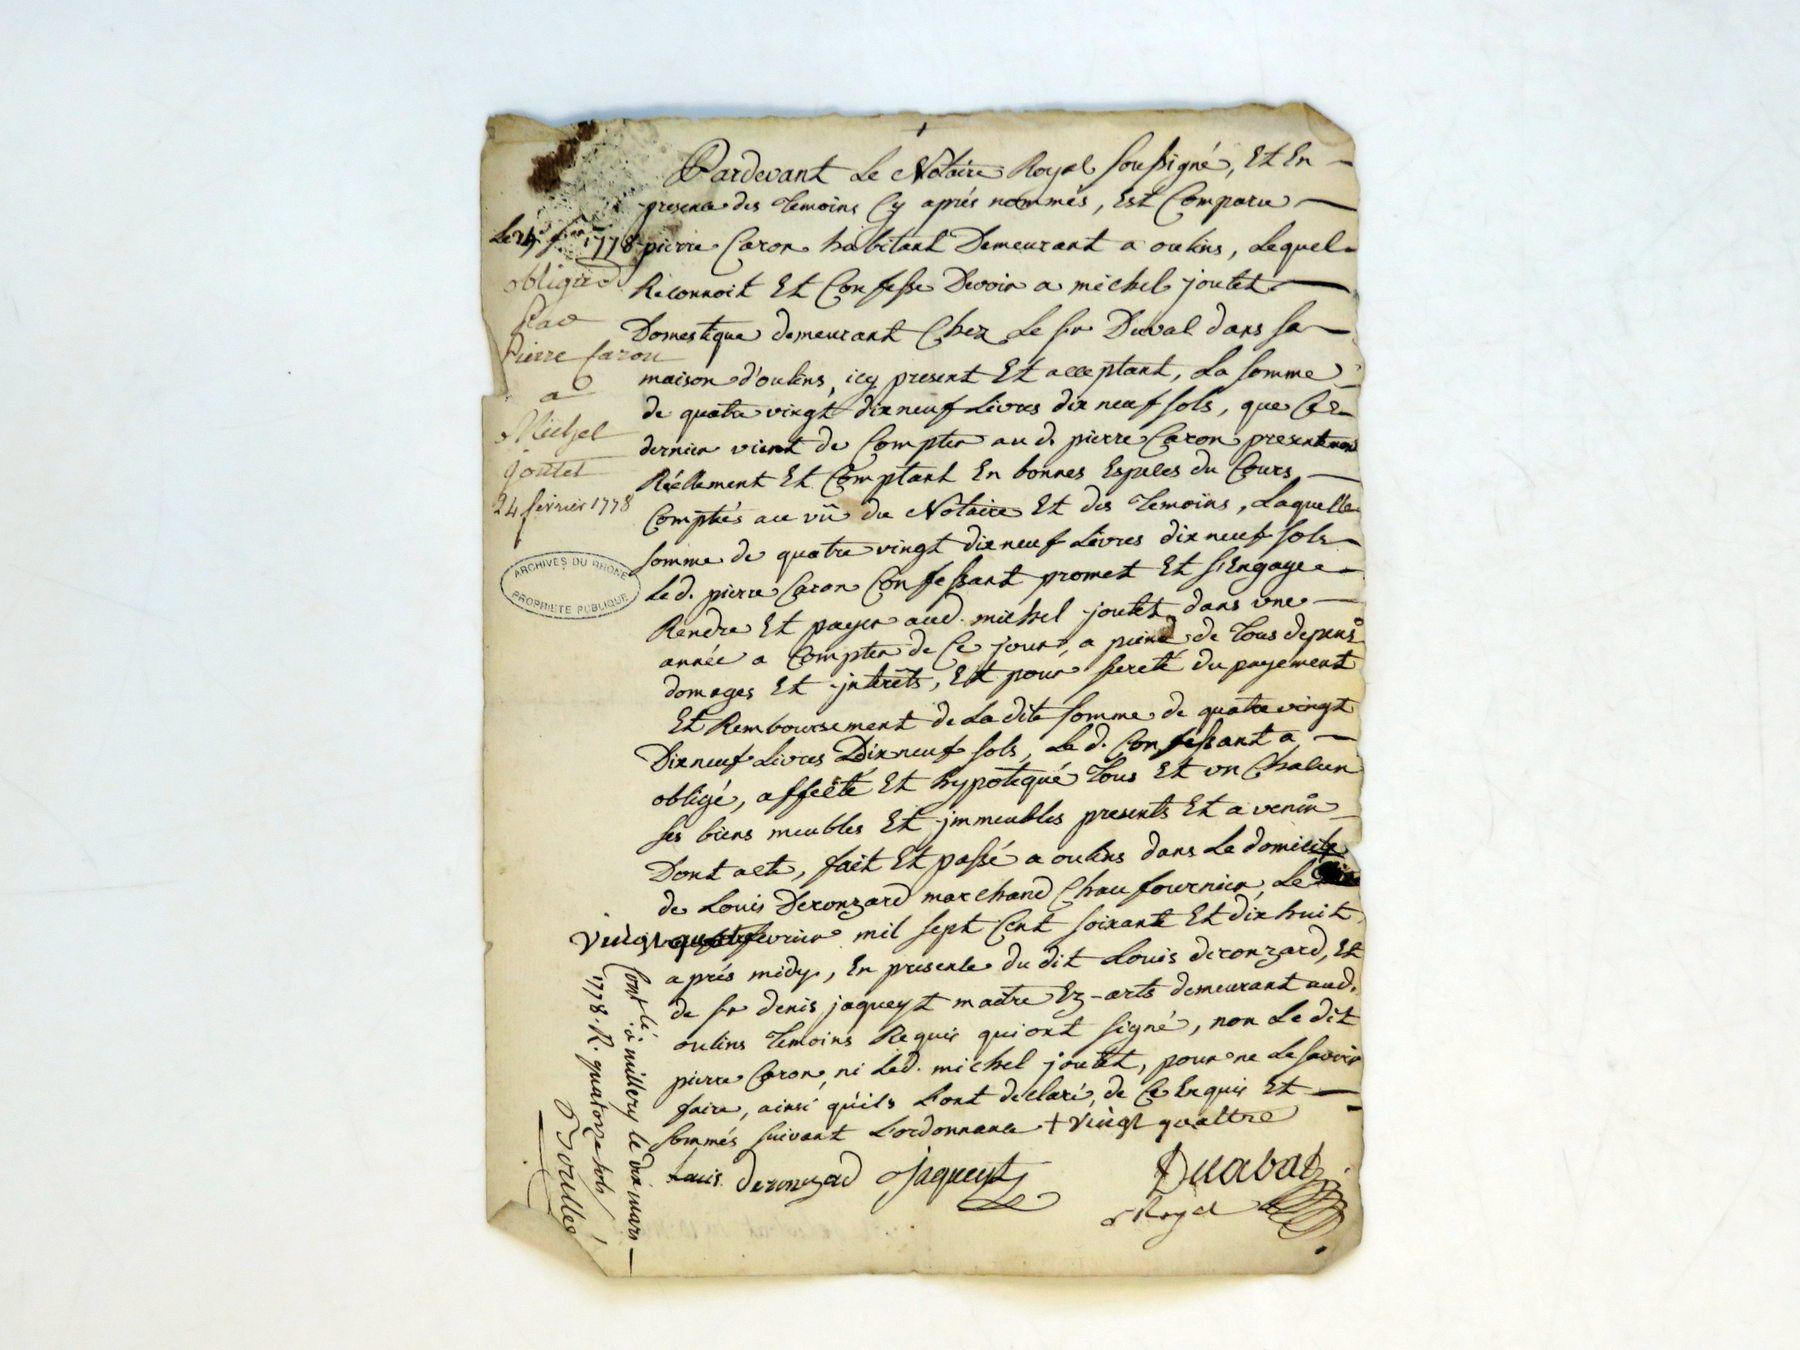 Pardevant Le Notaire Royal soussigné, Et En
presence des Temoins Cy aprés nommés, Est Comparu
pierre Caron habitant Demeurant a oulins, Lequel
Reconnoit Et Confesse Devoir a michel joutet
Domestique demeurant Chez Le sr Duval dans sa
maison d'oulins, icy present Et acceptant, La somme
de quatre vingt dix neuf Livres dix neuf sols, que Ce
dernier vient de Compter au d. pierre Caron presentement
Réellement Et Comptant En bonnes Especes du Cours
Comptées au vû du Notaire Et des Temoins, Laquelle
somme de quatre vingt dix neuf Livres dix neuf sols
Le d. pierre Caron Confessant promet Et s'Engage
Rendre Et payer aud. michel joutet dans une
année a Compter de Ce jour, a peine de Tous depens
domages Et interêts, Et pour sureté du payement
Et Remboursement de La dite somme de quatre vingt
Dix neuf Livres Dix neuf sols, Le d. Confessant a
obligé, affecté Et hypotequé Tous Et un Chacun
ses biens meubles Et immeubles presents Et a venir
Dont acte, fait Et passé a oulins dans Le domicile
de Louis Deronzard marchand Chaufournier, Le
vingt quatre fevrier mil sept Cent soixante Et dix huit
aprés midy, En presence du dit Louis deronzard, Et
de sr denis jaqueyt maitre Ez-arts demeurant aud.
oulins Temoins Requis qui ont signé, non Le dit
pierre Caron, ni Led. michel joutet, pour ne Le savoir
faire, ainsi qu'ils L'ont declaré, de Ce Enquis Et
sommés suivant L'ordonnance + vingt quattre
Louis deronzard Jaqueyt Duabal
Royal
Le 24 fer 1778
obligaon
Par
Pierre Caron
a
Michel
joutet
24 février 1778
ARCHIVES DU RHONE
PROPRIETE PUBLIQUE
Contlé à millery le dix mars
1778. R. quatorze sols